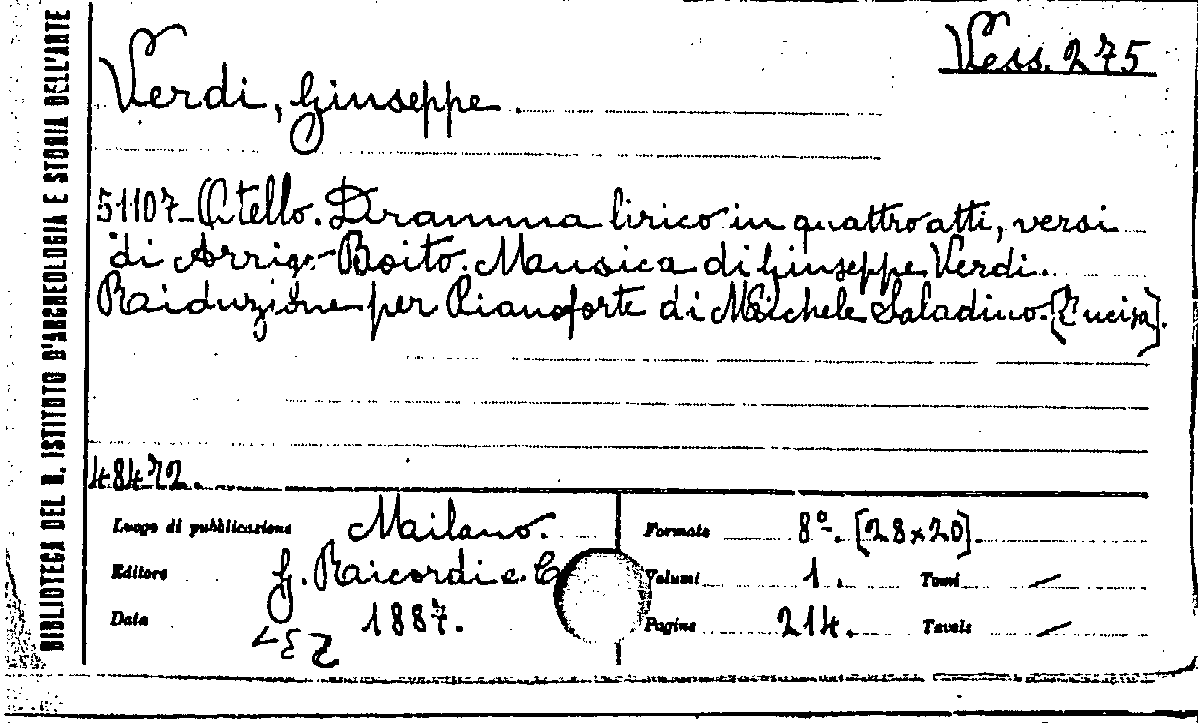 BIBLIOTECA DEL R. ISTITUTO D'ARCHEOLOGIA E STORIA DELL'ARTE
Vess. 275
Verdi, Giuseppe.
51107 - Otello. Dramma lirico in quattro atti, versi
di Arrigo Boito. Musica di Giuseppe Verdi.
Riduzione per Pianoforte di Michele Saladino.
48472.
Luogo di pubblicazione Milano.
Formato 8º. [28x20].
Editore G. Ricordi e. C
Volumi 1. Tomi —
Data 1887.
Pagine 214. Tavole —